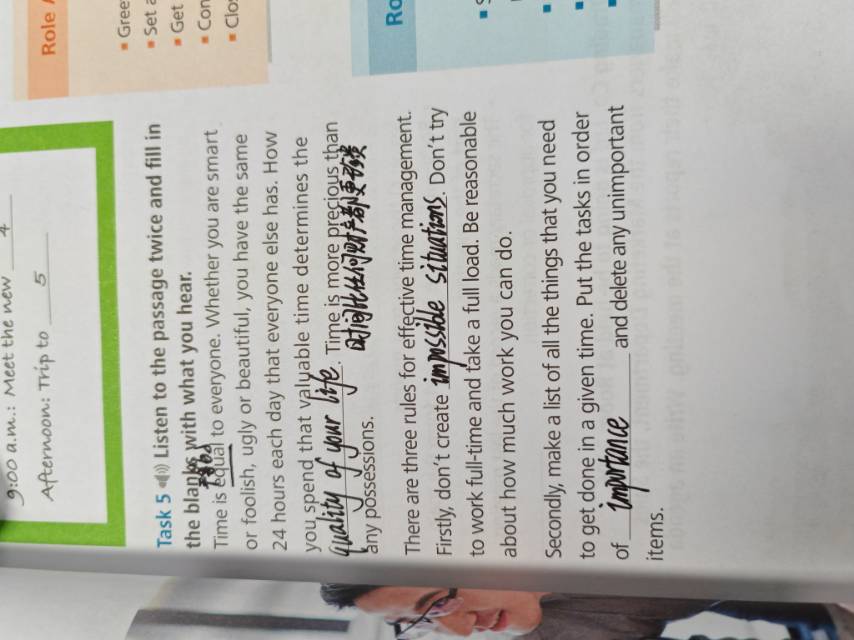 9:00 a.m.: Meet the new 4
Afternoon: Trip to 5
Task 5 Listen to the passage twice and fill in
the blanks with what you hear.
Time is equal to everyone. Whether you are smart
or foolish, ugly or beautiful, you have the same
24 hours each day that everyone else has. How
you spend that valuable time determines the
quality of your life. Time is more precious than
时间比任何财产都更珍贵
any possessions.
There are three rules for effective time management.
Firstly, don't create impossible situations. Don't try
to work full-time and take a full load. Be reasonable
about how much work you can do.
Secondly, make a list of all the things that you need
to get done in a given time. Put the tasks in order
of importance and delete any unimportant
items.
Role
Gree
Set a
Get
Con
Clos
Ro